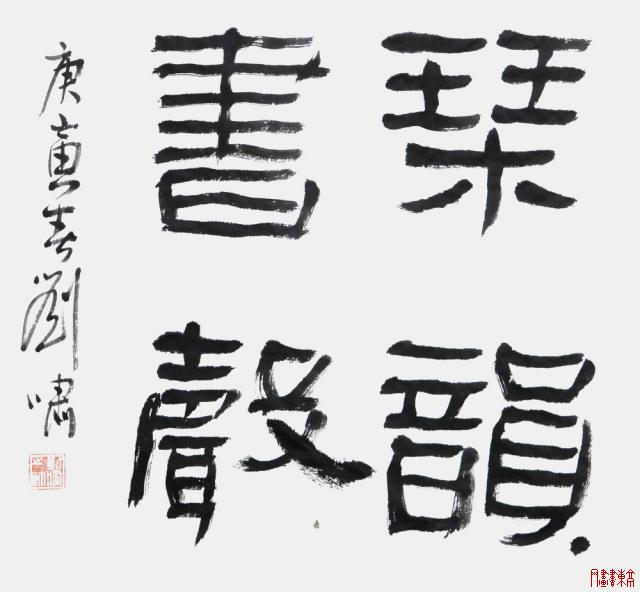 琹韻
書聲
庚寅春劉嘯